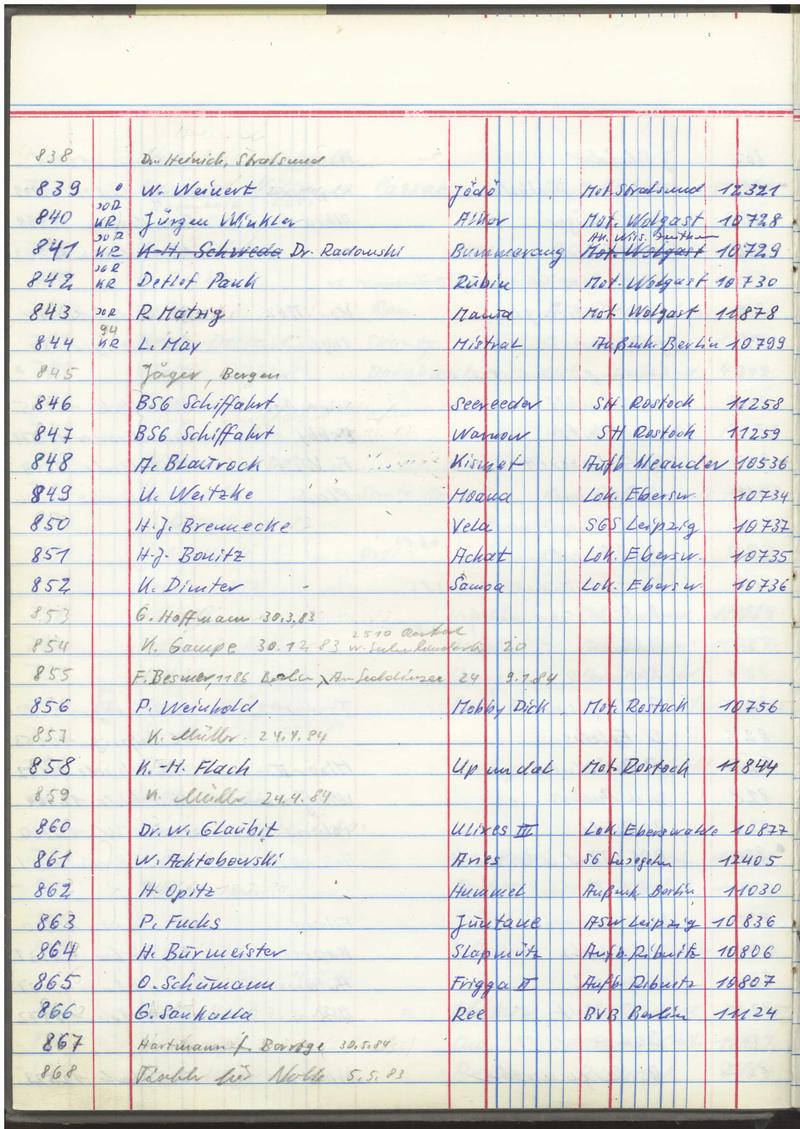 838 Dr. Heinich, Stralsund
839 W. Weinert Jödö Mot. Stralsund 12321
840 KR Jürgen Winkler Alkor Mot. Wolgast 10728
841 KR K-H. Schweda Dr. Radomski Bummerang Mot. Wolgast 10729
842 KR Detlef Pank Rubin Mot. Wolgast 10730
843 R. Matzig Mot. Wolgast 11878
94
844 KR L. May Mistral Außenh. Berlin 10799
845 Jäger, Bergen
846 BSG Schiffahrt Seereeder SH Rostock 11258
847 BSG Schiffahrt Warnow SH Rostock 11259
848 A. Blaurock Kismet Aufb. Meander 10536
849 U. Weitzke Moana Lok. Ebersw. 10734
850 H.J. Brennecke Vela SGS Leipzig 10737
851 H.J. Bonitz Achat Lok. Ebersw. 10735
852 K. Dimter Samoa Lok. Ebersw. 10736
853 G. Hoffmann 30.3.83
854 K. Gampe 30.12.83 2510 Rostock 20
855 F. Besmer, 1186 Berlin, 24 9.1.84
856 P. Weinhold Mobby Dick Mot. Rostock 10756
857 K. Müller 24.4.84
858 K.-H. Flach Up un dal Mot. Rostock 11844
859 K. Müller 24.4.84
860 Dr. W. Glaubit Ulixes III Lok. Eberswalde 10877
861 W. Achtabowski Aries SG 12405
862 H. Opitz Hummel Außenh. Berlin 11030
863 P. Fuchs Juntane ASW Leipzig 10836
864 H. Burmeister Slapmütz Aufb. Ribnitz 10806
865 O. Schumann Frigga II Aufb. Ribnitz 10807
866 G. Sankalla Ree BVB Berlin 11124
867 Hartmann f. 30.5.84
868 für Nolte 5.5.83